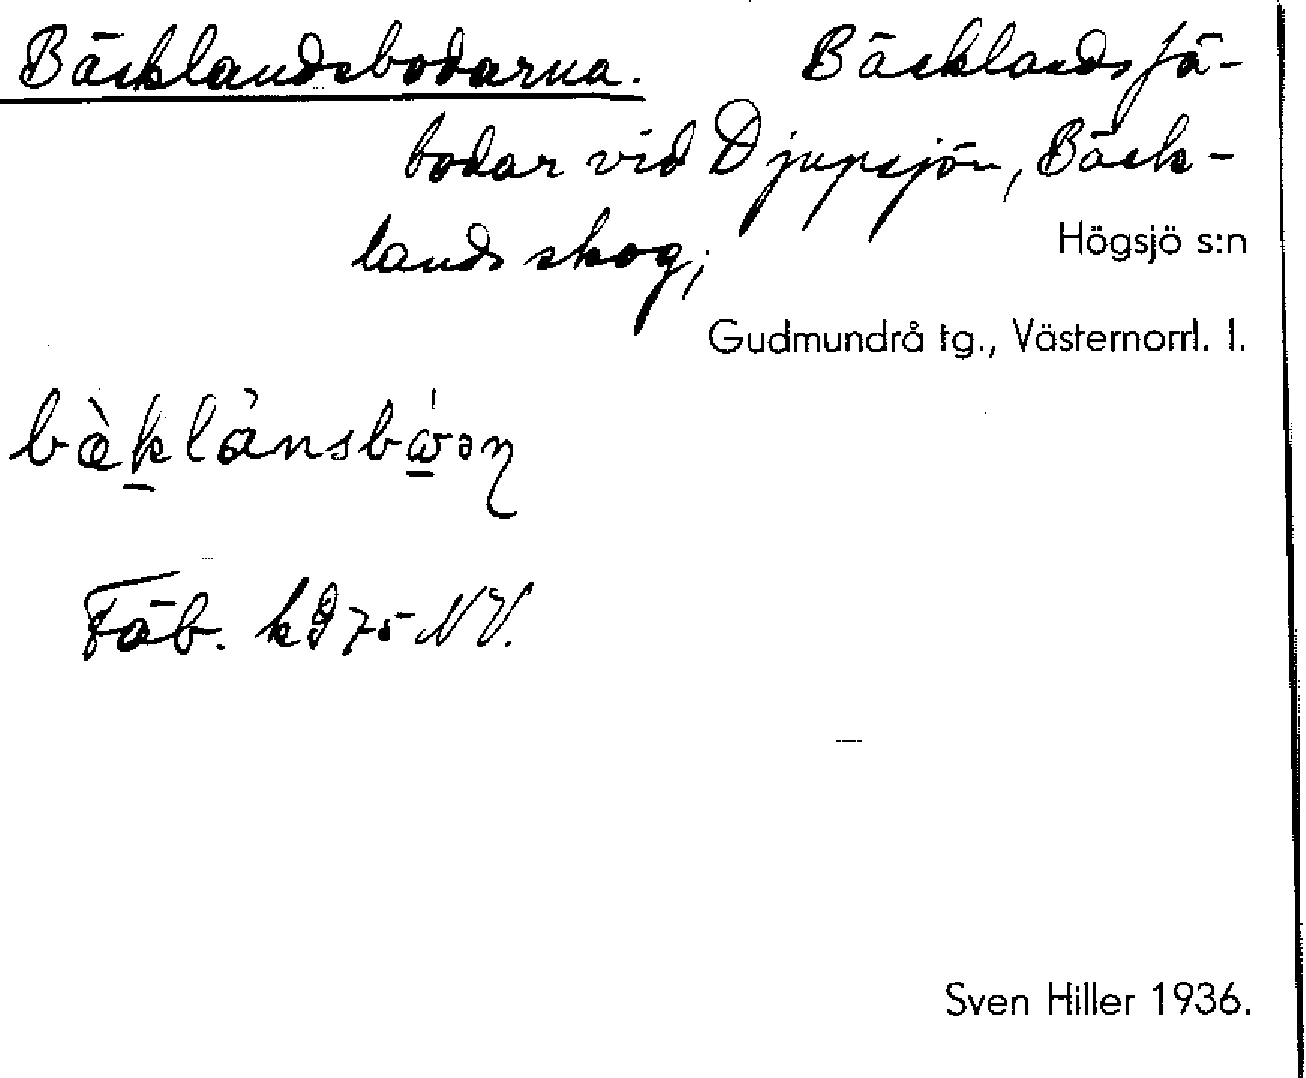 Bäcklandsbodarna. Bäcklands fä-
bodar vid Djupsjön, Bäck-
lands skog;
Högsjö s:n
Gudmundrå tg., Västernorrl. l.
Fäb. 75 NV.
Sven Hiller 1936.